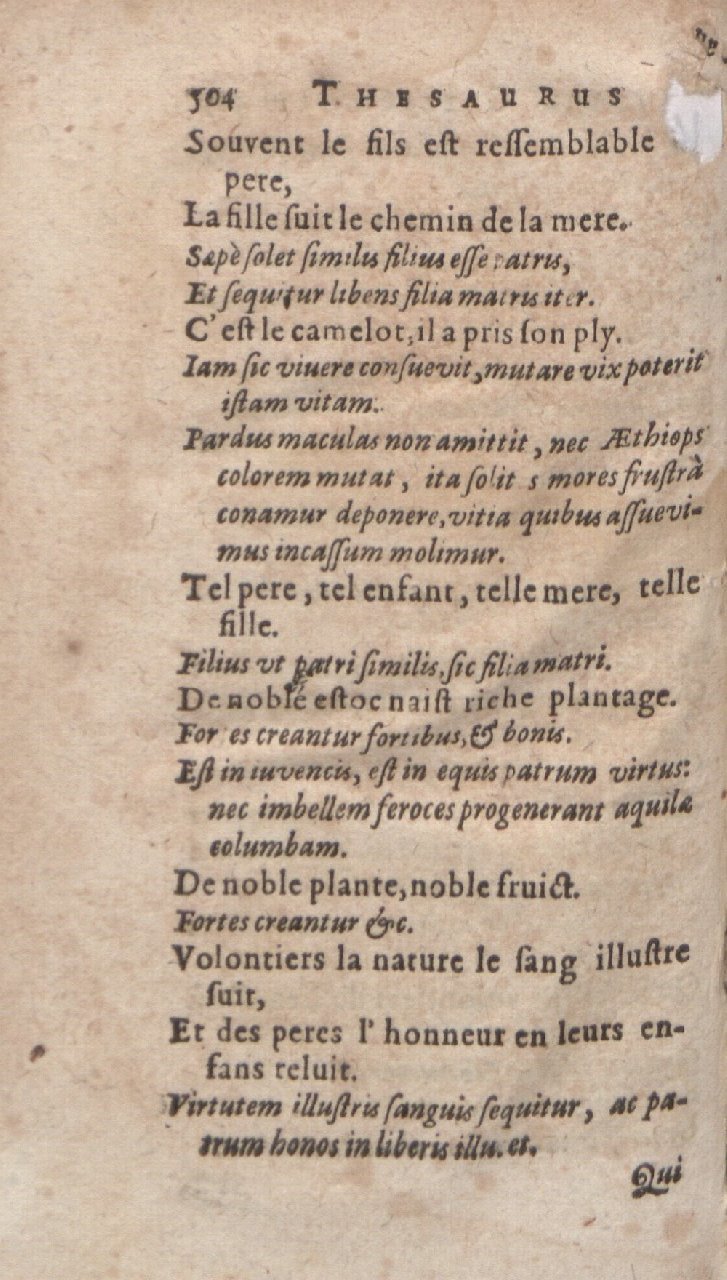 504 THESAURUS
Souvent le fils est ressemblable
pere,
La fille suit le chemin de la mere.
Sæpè solet similis filius esse patris,
Et sequitur libens filia matris iter.
C'est le camelot, il a pris son ply.
Iam sic vivere consuevit, mutare vix poterit
istam vitam.
Pardus maculas non amittit, nec Æthiops
colorem mutat, ita solit s mores frustrà
conamur deponere, vitia quibus assuevi-
mus incassum molimur.
Tel pere, tel enfant, telle mere, telle
fille.
Filius vt patri similis, sic filia matri.
De noble estoc naist riche plantage.
For es creantur fortibus, & bonis.
Est in iuvencis, est in equis patrum virtus:
nec imbellem feroces progenerant aquilæ
columbam.
De noble plante, noble fruict.
Fortes creantur &c.
Volontiers la nature le sang illustre
suit,
Et des peres l'honneur en leurs en-
fans reluit.
Virtutem illustris sanguis sequitur, ac pa-
trum honos in liberis illu.et.
Qui